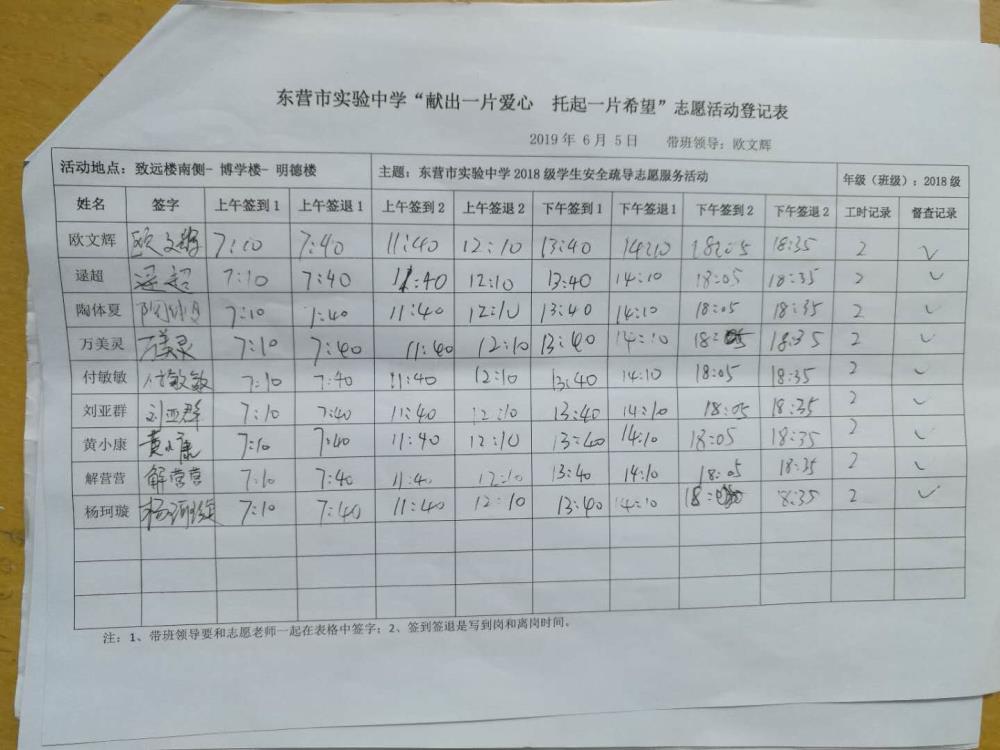 东营市实验中学“献出一片爱心 托起一片希望”志愿活动登记表
2019 年 6 月 5 日 带班领导：欧文辉
活动地点：致远楼南侧- 博学楼- 明德楼 主题：东营市实验中学 2018 级学生安全疏导志愿服务活动 年级（班级）：2018 级
姓名 签字 上午签到 1 上午签退 1 上午签到 2 上午签退 2 下午签到 1 下午签退1 下午签到 2 下午签退 2 工时记录 督查记录
欧文辉 欧文辉 7:10 7:40 11:40 12:10 13:40 14:10 18:05 18:35 2 ✓
逯超 逯超 7:10 7:40 11:40 12:10 13:40 14:10 18:05 18:35 2 ✓
陶体夏 7:10 7:40 11:40 12:10 13:40 14:10 18:05 18:35 2 ✓
万美灵 万美灵 7:10 7:40 11:40 12:10 13:40 14:10 18:05 18:35 2 ✓
付敏敏 付敏敏 7:10 7:40 11:40 12:10 13:40 14:10 18:05 18:35 2 ✓
刘亚群 刘亚群 7:10 7:40 11:40 12:10 13:40 14:10 18:05 18:35 2 ✓
黄小康 黄小康 7:10 7:40 11:40 12:10 13:40 14:10 18:05 18:35 2 ✓
解营营 解营营 7:10 7:40 11:40 12:10 13:40 14:10 18:05 18:35 2 ✓
杨珂璇 杨珂璇 7:10 7:40 11:40 12:10 13:40 14:10 18: 8:35 2 ✓
注：1、带班领导要和志愿老师一起在表格中签字；2、签到签退是写到岗和离岗时间。